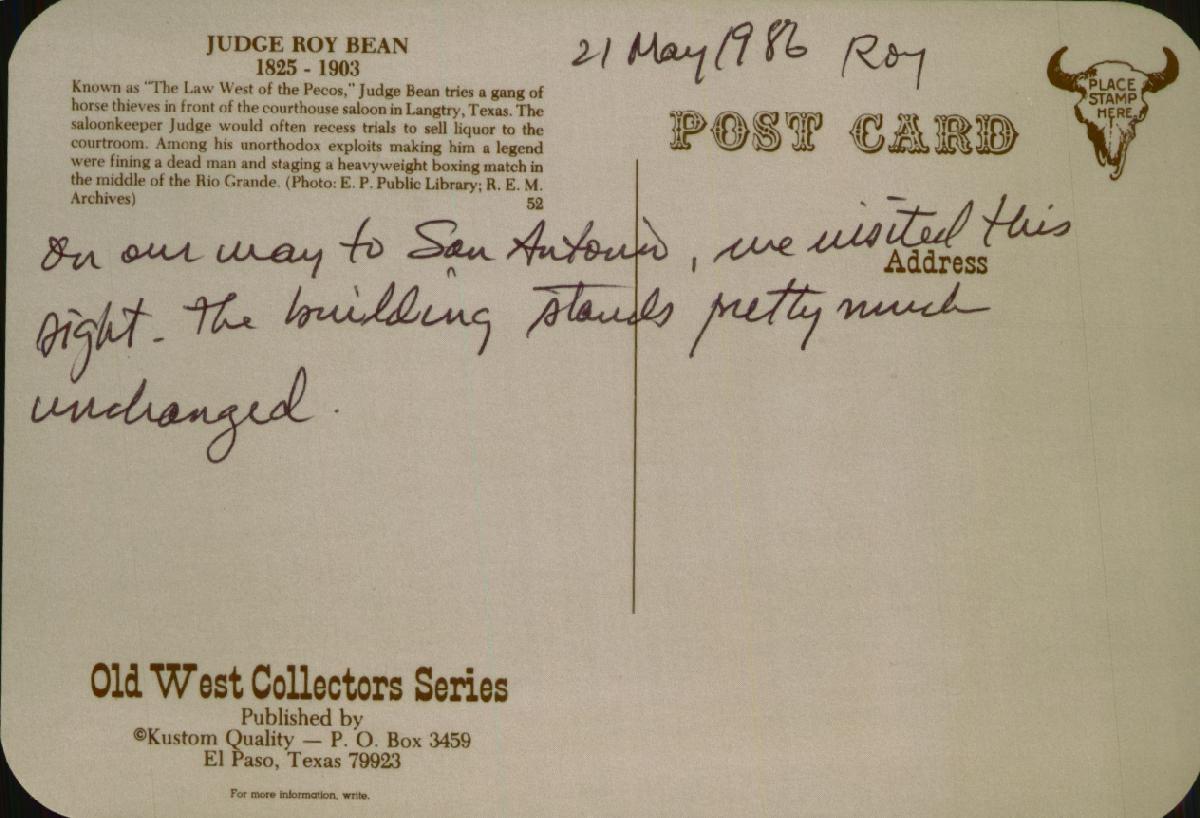 JUDGE ROY BEAN
1825 - 1903
Known as "The Law West of the Pecos," Judge Bean tries a gang of
horse thieves in front of the courthouse saloon in Langtry, Texas. The
saloonkeeper Judge would often recess trials to sell liquor to the
courtroom. Among his unorthodox exploits making him a legend
were fining a dead man and staging a heavyweight boxing match in
the middle of the Rio Grande. (Photo: E. P. Public Library; R. E. M.
Archives)
52
21 May 1986 Roy
POST CARD
PLACE
STAMP
HERE
On our way to San Antonio, we visited this
Address
sight. The building stands pretty much
unchanged.
Old West Collectors Series
Published by
©Kustom Quality — P. O. Box 3459
El Paso, Texas 79923
For more information, write.